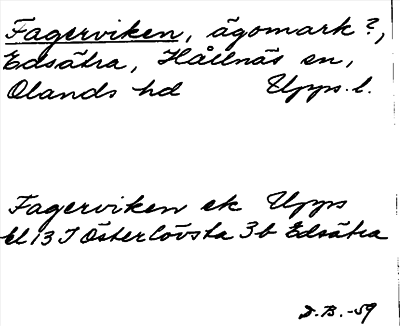 Fagerviken, ägomark?,
Edsätra, Hållnäs sn,
Olands hd Upps. l.
Fagerviken ek Upps
bl 13 I Österlövsta 3b Edsätra
D.B.-59